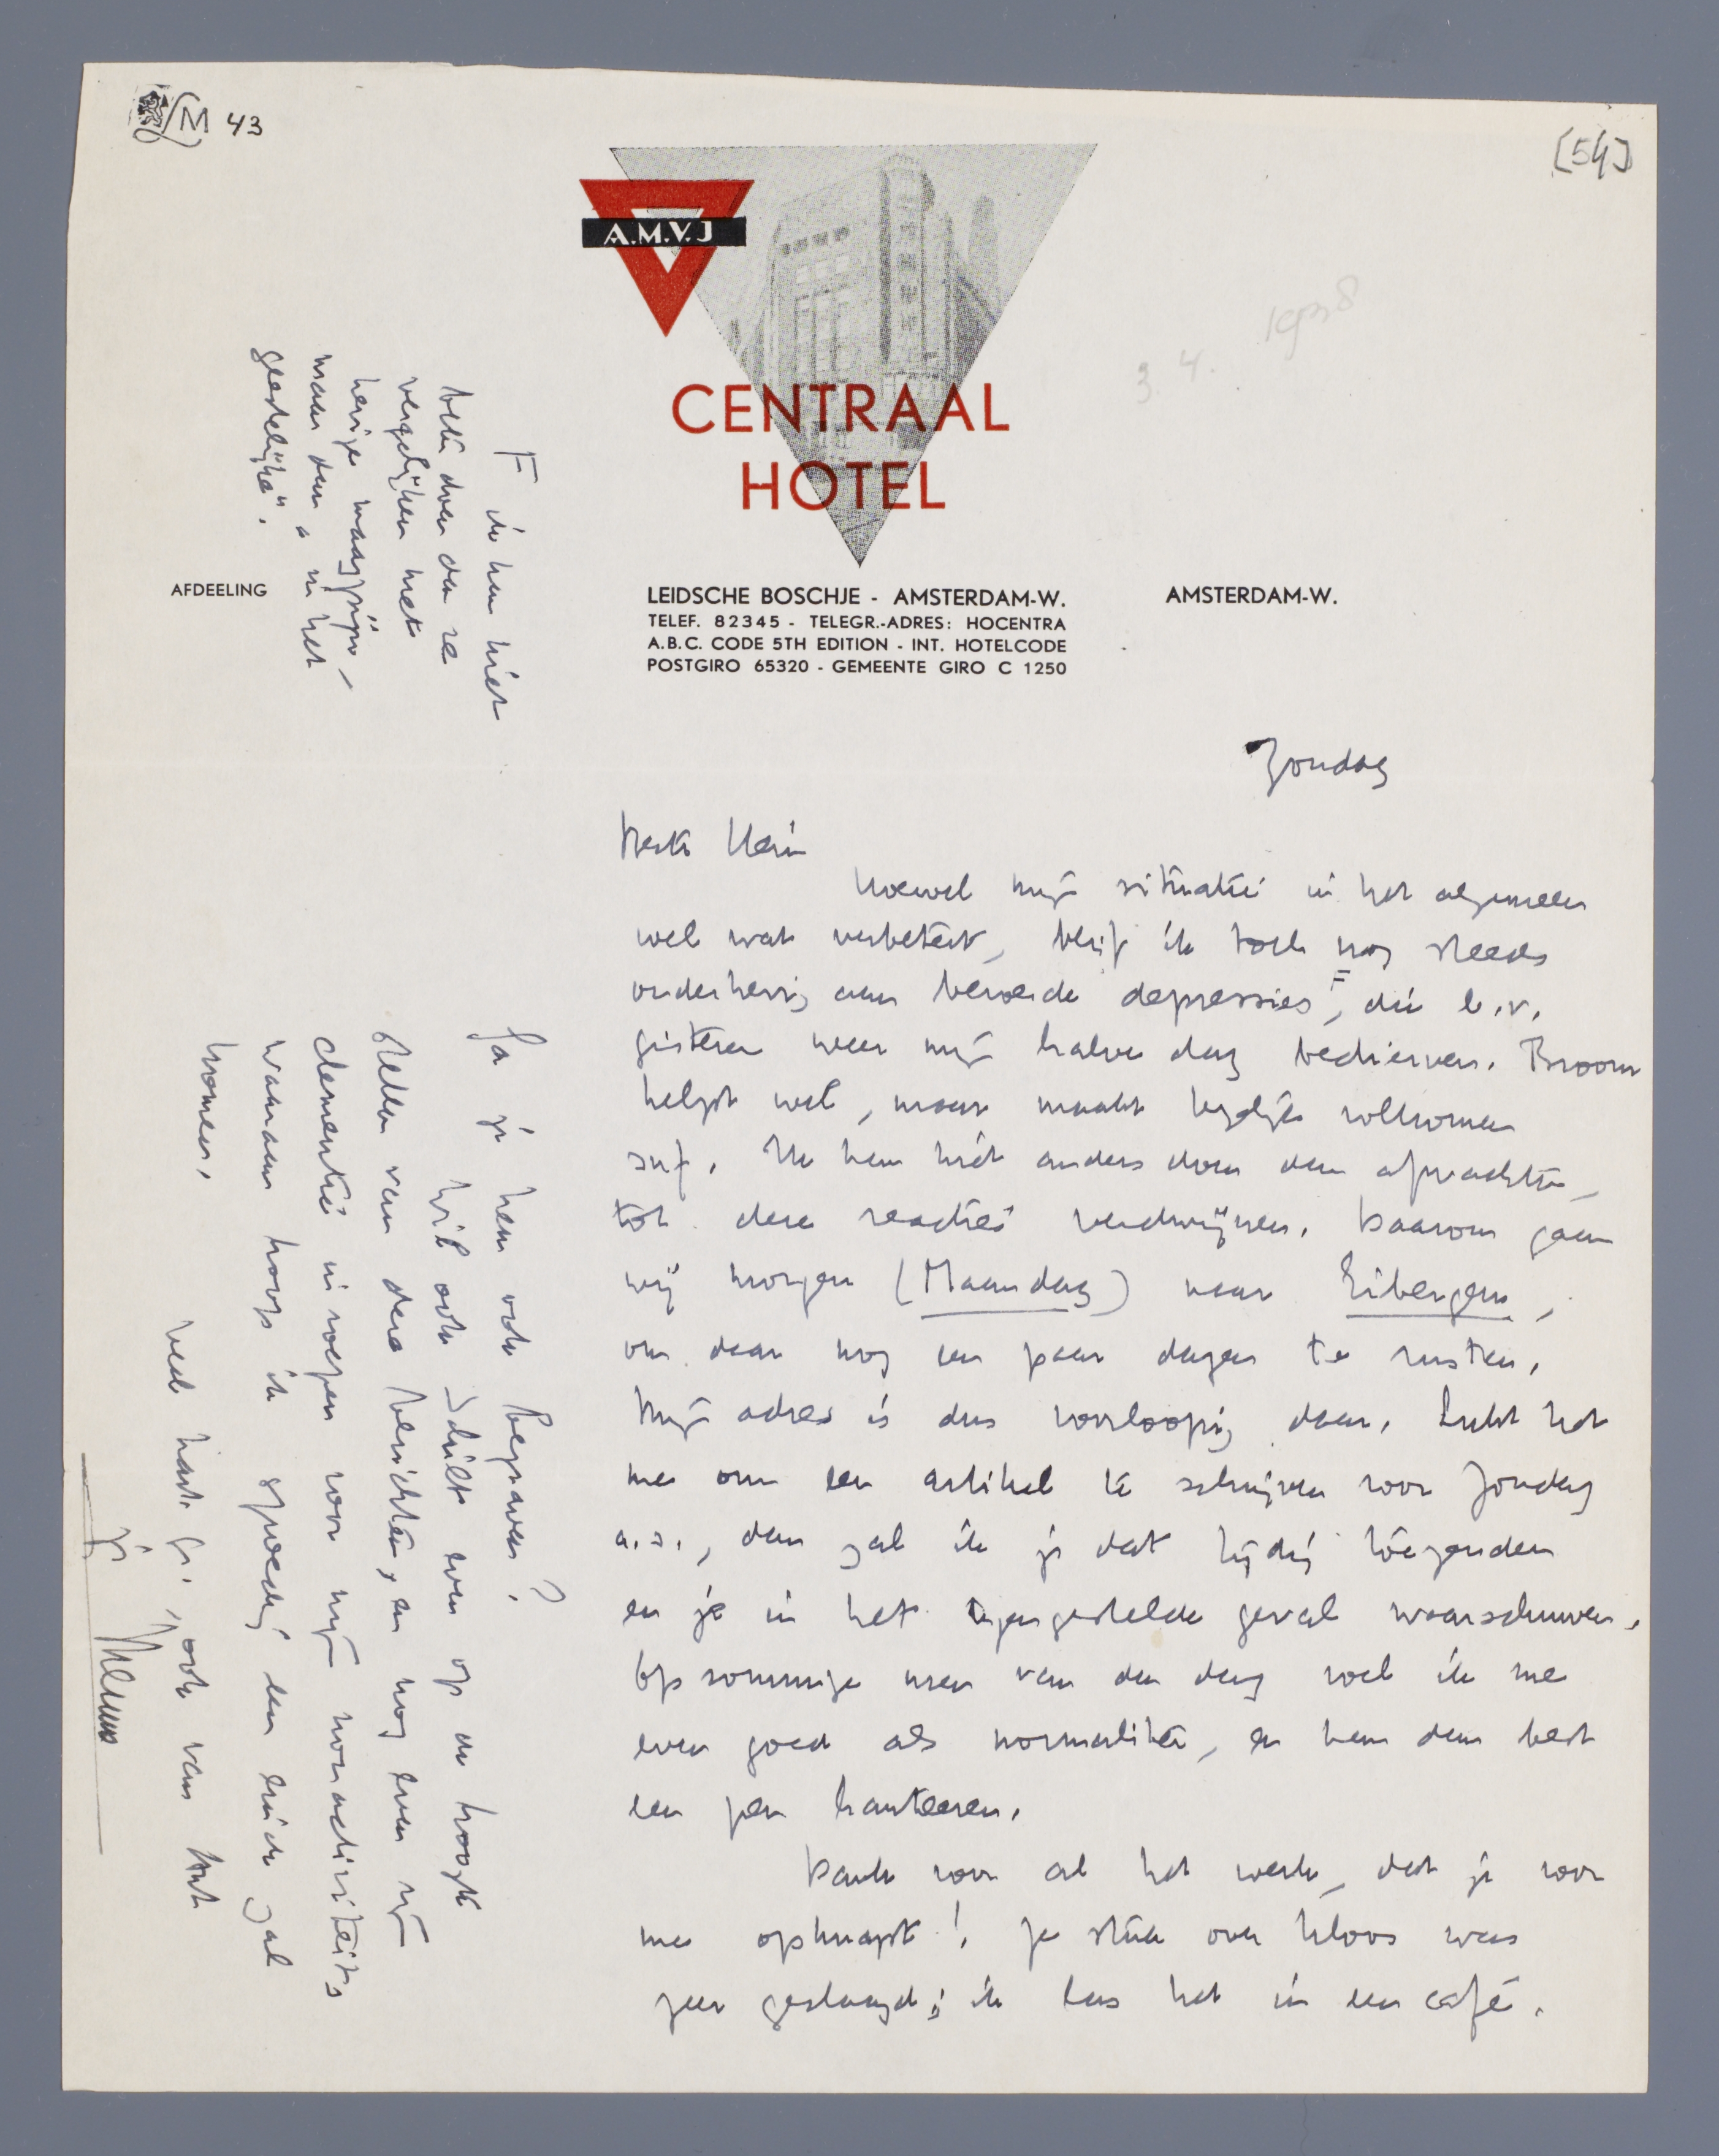 LM 43
[54]
A.M.V.J
CENTRAAL
HOTEL
3.4. 1938
AFDEELING
LEIDSCHE BOSCHJE - AMSTERDAM-W.
TELEF. 82345 - TELEGR.-ADRES: HOCENTRA
A.B.C. CODE 5TH EDITION - INT. HOTELCODE
POSTGIRO 65320 - GEMEENTE GIRO C 1250
AMSTERDAM-W.
Zondag
Beste Hein
Hoewel mijn situatie in het algemeen
wel wat verbetert, blijf ik toch nog steeds
onderhevig aan beroerde depressies F, die b.v.
gisteren weer mijn halve dag bedierven. Broom
helpt wel, maar maakt tegelijk volkomen
suf. Ik kan niet anders doen dan afwachten,
tot deze reacties verdwijnen. Daarom gaan
wij morgen (Maandag) naar Eibergen,
om daar nog een paar dagen te rusten.
Mijn adres is dus voorloopig daar. Lukt het
me om een artikel te schrijven voor Zondag
a.s., dan zal ik je dat tijdig toezenden
en je in het tegengestelde geval waarschuwen.
Op sommige uren van den dag voel ik me
even goed als normaliter, en kan dan best
een pen hanteeren.
Dank voor al het werk, dat je voor
me opknapt! Je stuk over Kloos was
zeer geslaagd; ik las het in een café.
Ga je hem ook begraven?
Wil ook Schilt even op de hoogte
stellen van deze berichten, en nog even zijn
clementie inroepen voor mijn nonactiviteit,
waaraan hoop ik spoedig een einde zal
komen.
Veel hart. gr., ook van Ant
je Menno
F ik kan niet
beter doen dan ze
vergelijken met
hevige maagpijn –
maar dan "in het
geestelijke".